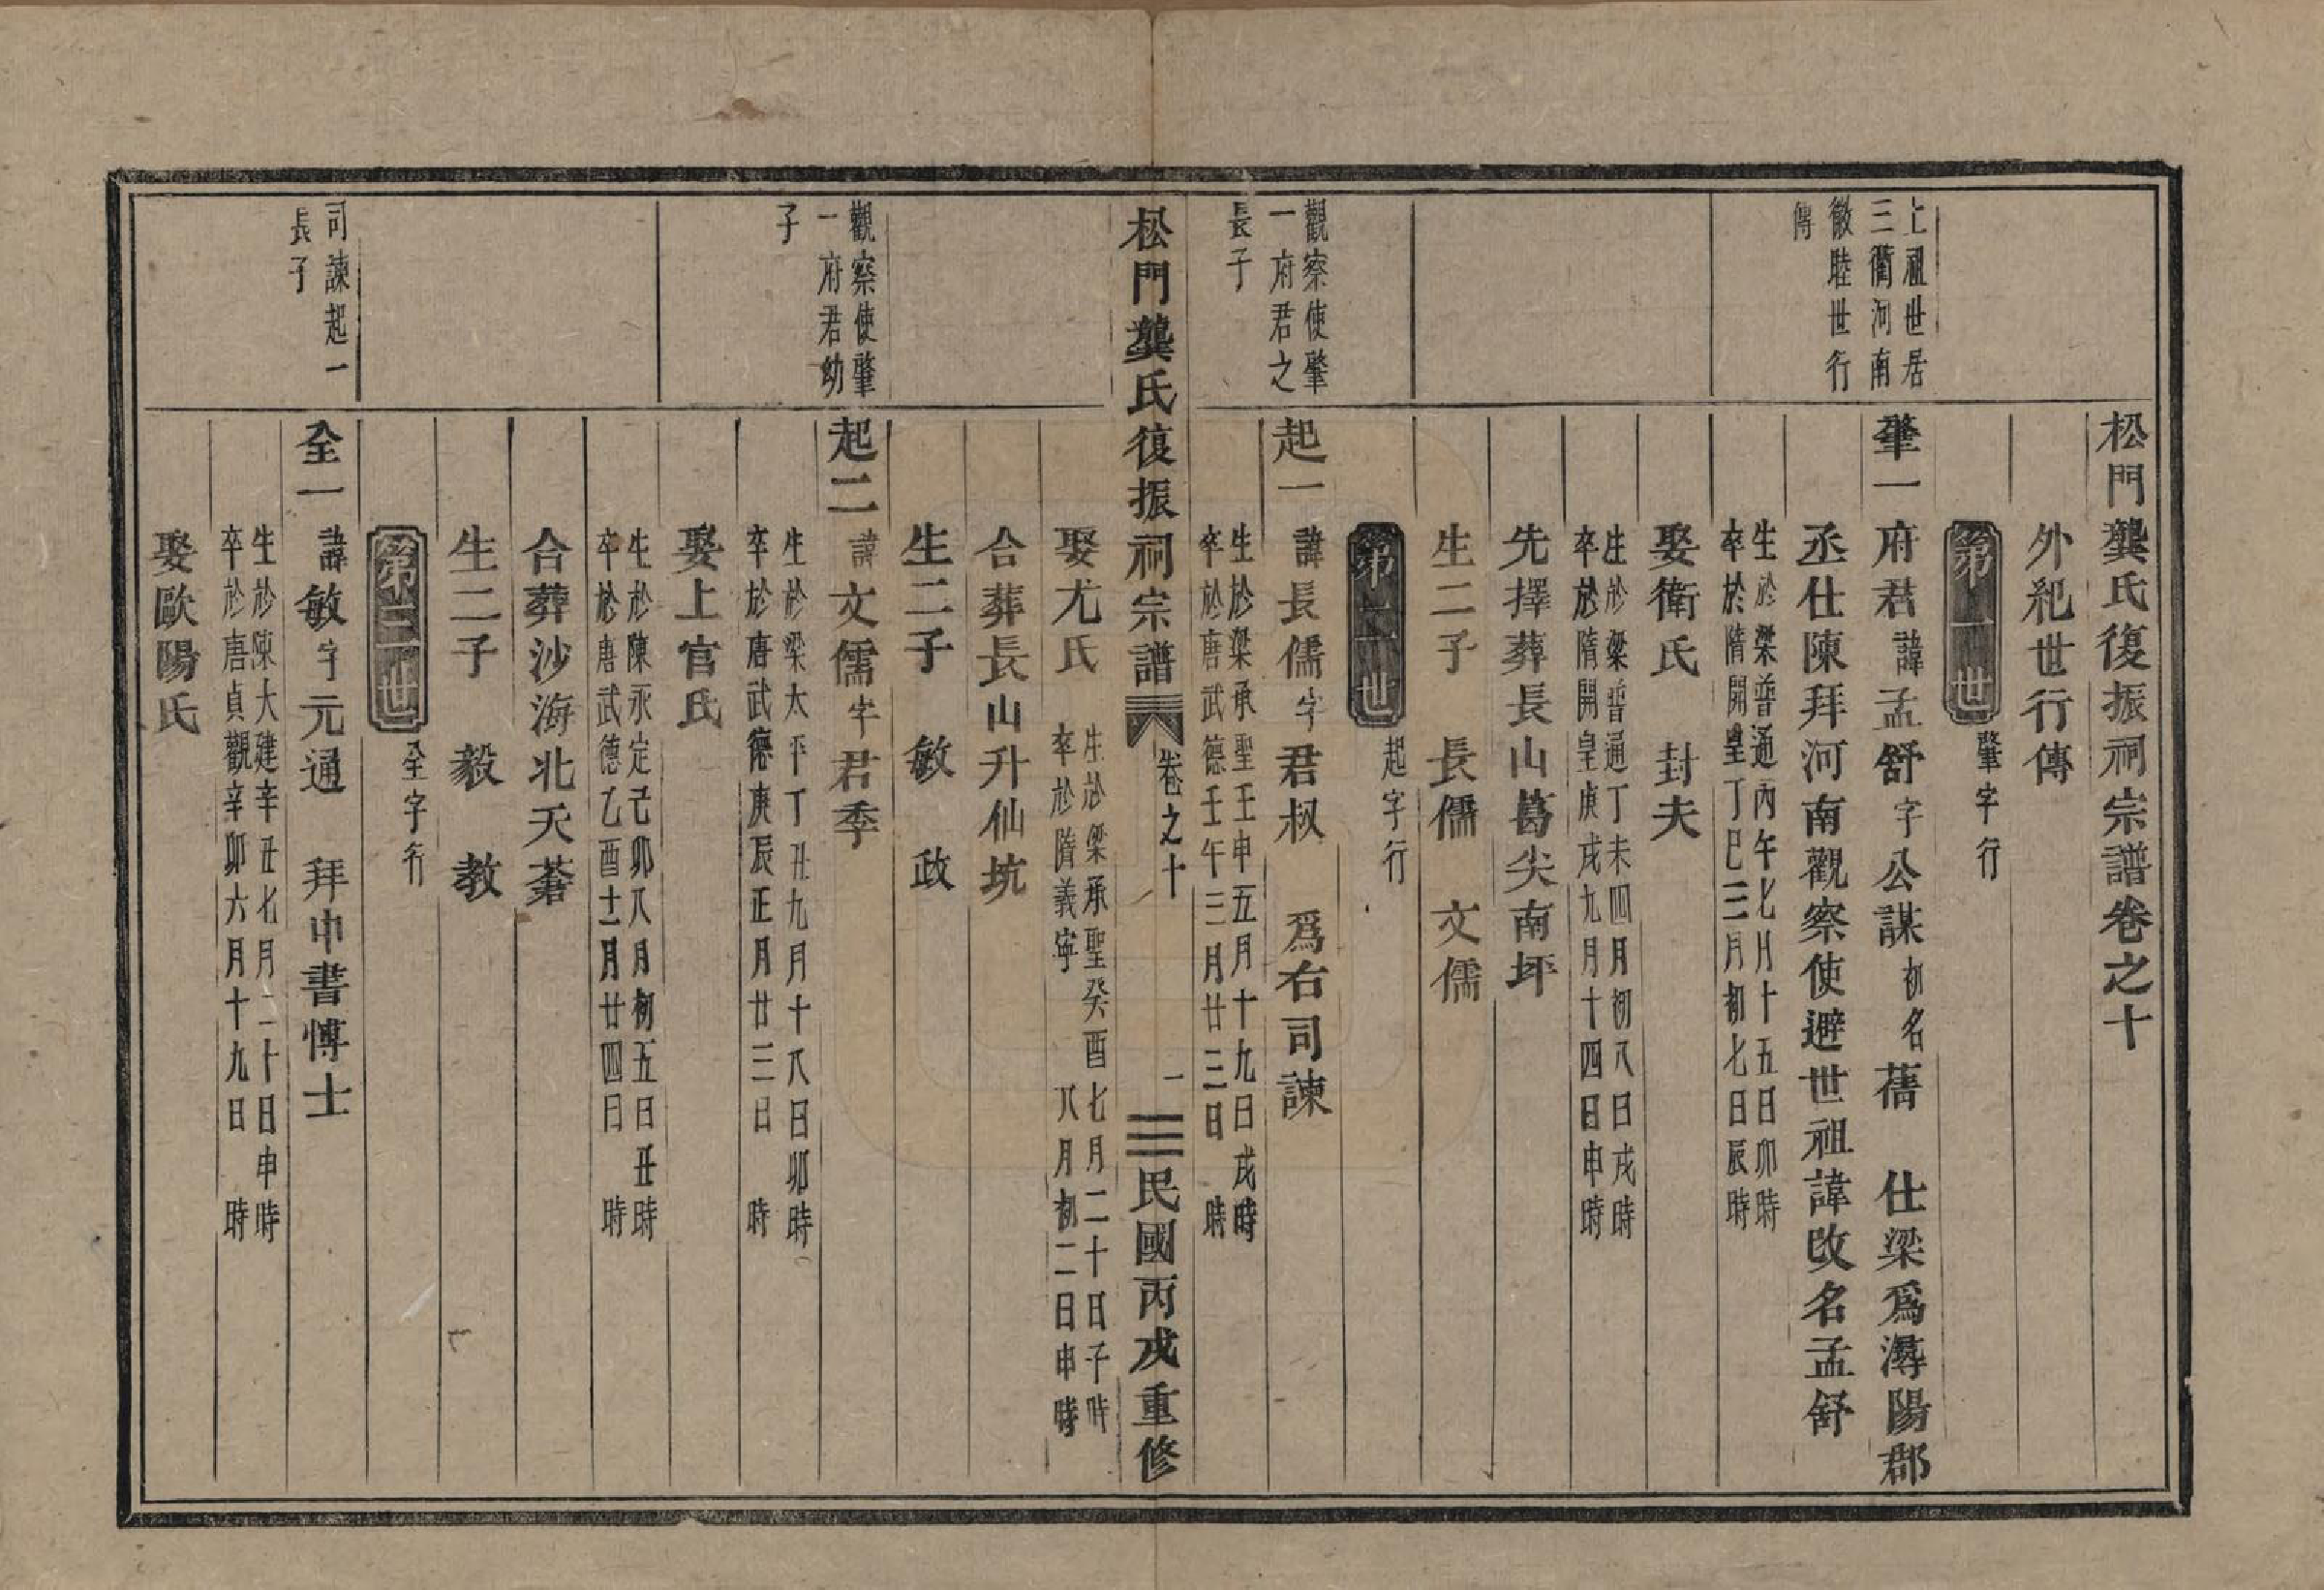 松門龔氏復振祠宗譜卷之十
外祀世行傳
第一世
肇字行
上祖世居
三衢河南
徽睦世行
傳
肇一府君諱孟舒字公謀初名蒨 仕梁爲潯陽郡
丞仕陳拜河南觀察使避世祖諱改名孟舒
生於梁普通丙午七月十五日卯時
卒於隋開皇丁巳三月初七日辰時
娶衛氏 封夫
生於梁普通丁未四月初八日戌時
卒於隋開皇庚戌九月十四日申時
先擇葬長山葛尖南坪
生二子 長儒 文儒
第二世
起字行
觀察使肇
一府君之
長子
起一諱長儒字君叔 爲右司諫
生於梁承聖壬申五月十九日戌時
卒於唐武德壬午三月廿三日 時
松門龔氏復振祠宗譜 卷之十 一 民國丙戌重修
娶尤氏
生於梁承聖癸酉七月二十日子時
卒於隋義寧 八月初二日申時
合葬長山升仙坑
生二子 敏 政
觀察使肇
一府君幼
子
起二諱文儒字君季
生於梁太平丁丑九月十八日卯時
卒於唐武德庚辰正月廿三日 時
娶上官氏
生於陳永定己卯八月初五日丑時
卒於唐武德乙酉十二月廿四日 時
合葬沙海北天蓊
生二子 毅 教
第三世
全字行
司諫起一
長子
全一諱敏字元通 拜中書博士
生於陳大建辛丑七月二十日申時
卒於唐貞觀辛卯六月十九日 時
娶歐陽氏